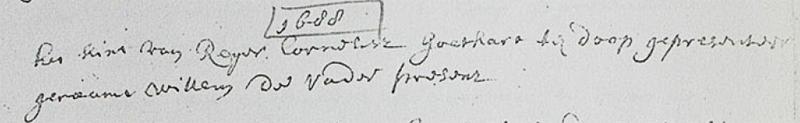 1688
het kint van Reyer Cornelisz Goethart ten doop gepresenteer
genaamt Willem de vader present